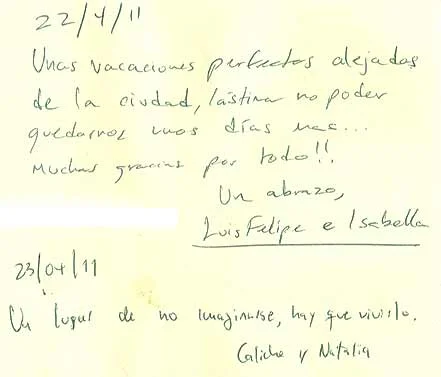 22/4/11
Unas vacaciones perfectas alejadas
de la ciudad, lástima no poder
quedarnos unos días mas...
Muchas gracias por todo!!
Un abrazo,
Luis Felipe e Isabella
23/04/11
Un lugar de no imaginarse, hay que vivirlo.
Caliche y Natalia